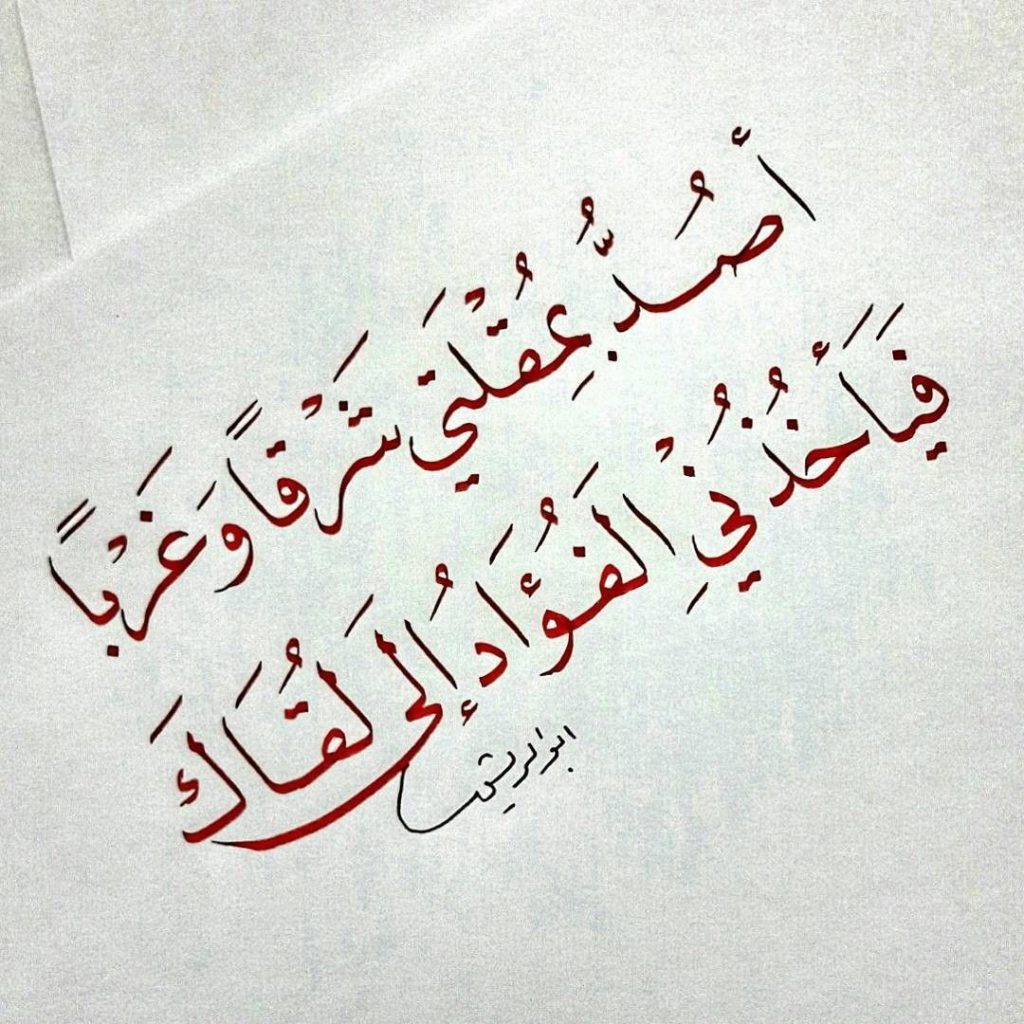 أَصُدُّ بِمُقْلَتِي شَرْقًا وَغَرْبًا
فَيَأْخُذُنِي الْفُؤَادُ إِلَى لُقَاكَ
ابو الريش